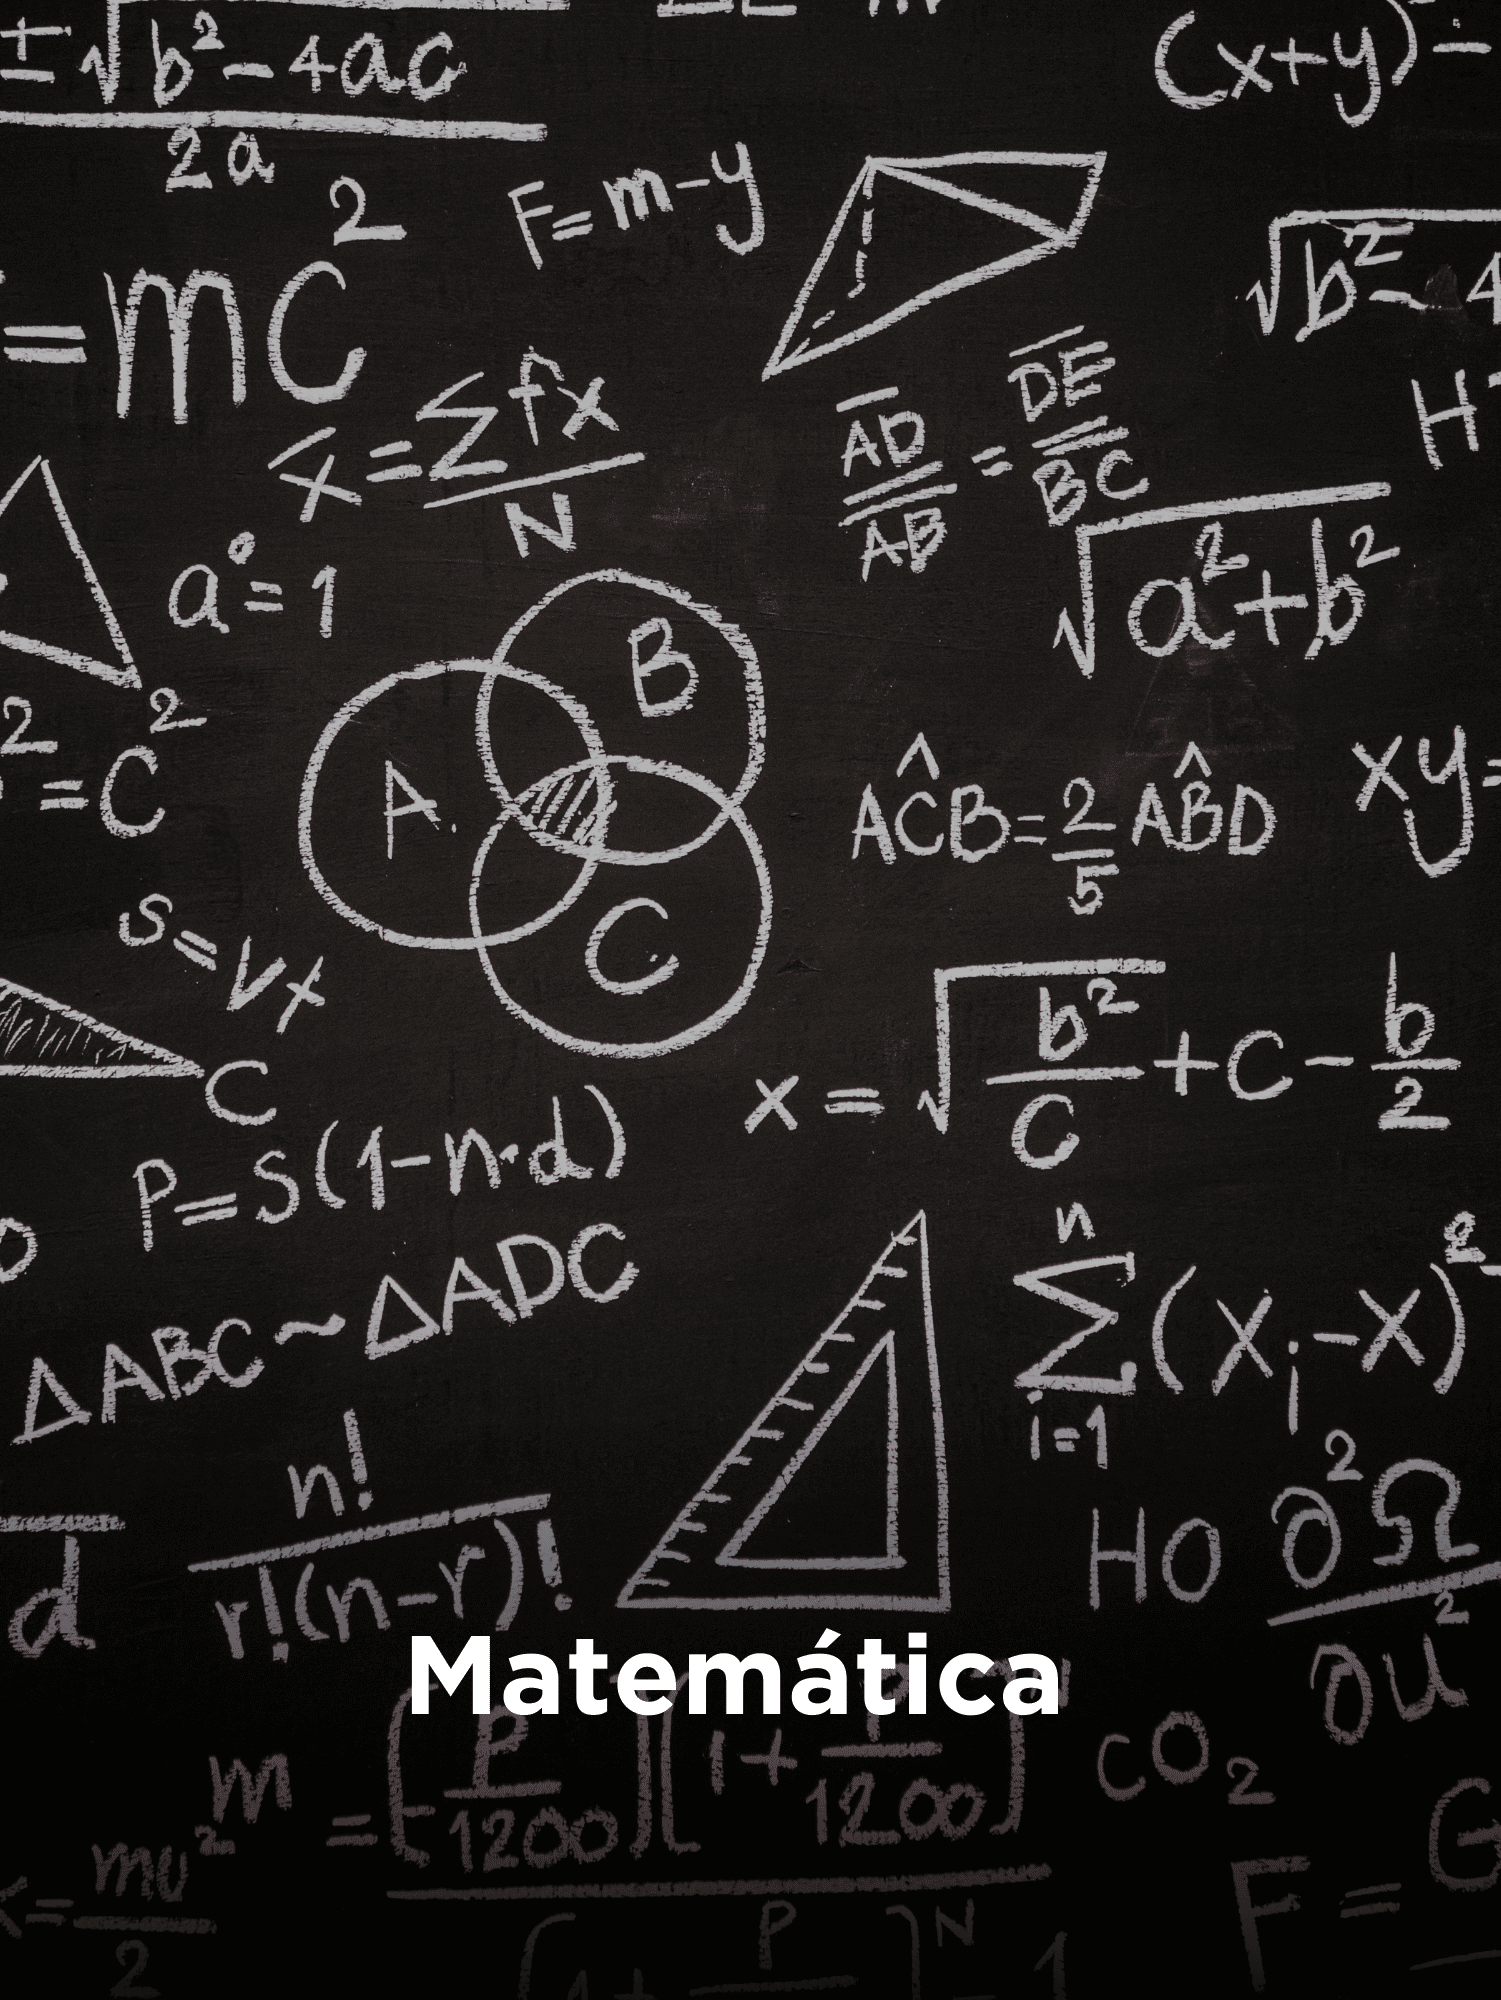 ± √b² - 4ac
2a
(x+y) -
F = m - y
= mc²
√b² - 4
x = Σfx
N
AD
AB
=
DE
BC
H
a° = 1
√a² + b²
A
B
C
² = C²
AĈB = 2/5 AB̂D
xy =
s = vx
C
x = √b²/c + c - b/2
P = S(1 - n·d)
ΔABC ~ ΔADC
n
Σ (Xᵢ - X)²
i=1
n!
r!(n-r)!
d
HO
∂²Ω
∂u²
Matemática
m = (P/1200)[1 + P/1200]ᴺ
CO₂
mv²
2
F = G
P
N
1